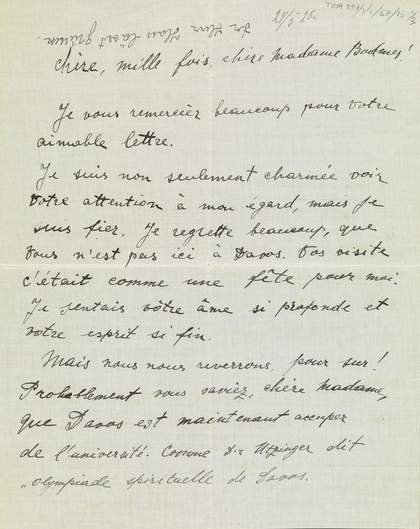 20/5 28.
Chère, mille fois, chère Madame Bodmer!
Je vous remercier beaucoup pour votre
aimable lettre.
Je suis non seulement charmée voir
votre attention à mon égard, mais je
suis fier. Je regrette beaucoup, que
vous n'est pas ici à Davos. Vos visite
c'était comme une fête pour moi.
Je sentais vôtre âme si profonde et
votre esprit si fin.
Mais nous nous reverrons, pour sur!
Probablement vous saviez, chère Madame,
que Davos est maintenant occuper
de l'université. Comme Dr Utzinger dit
„olympiade spirituelle de Davos.